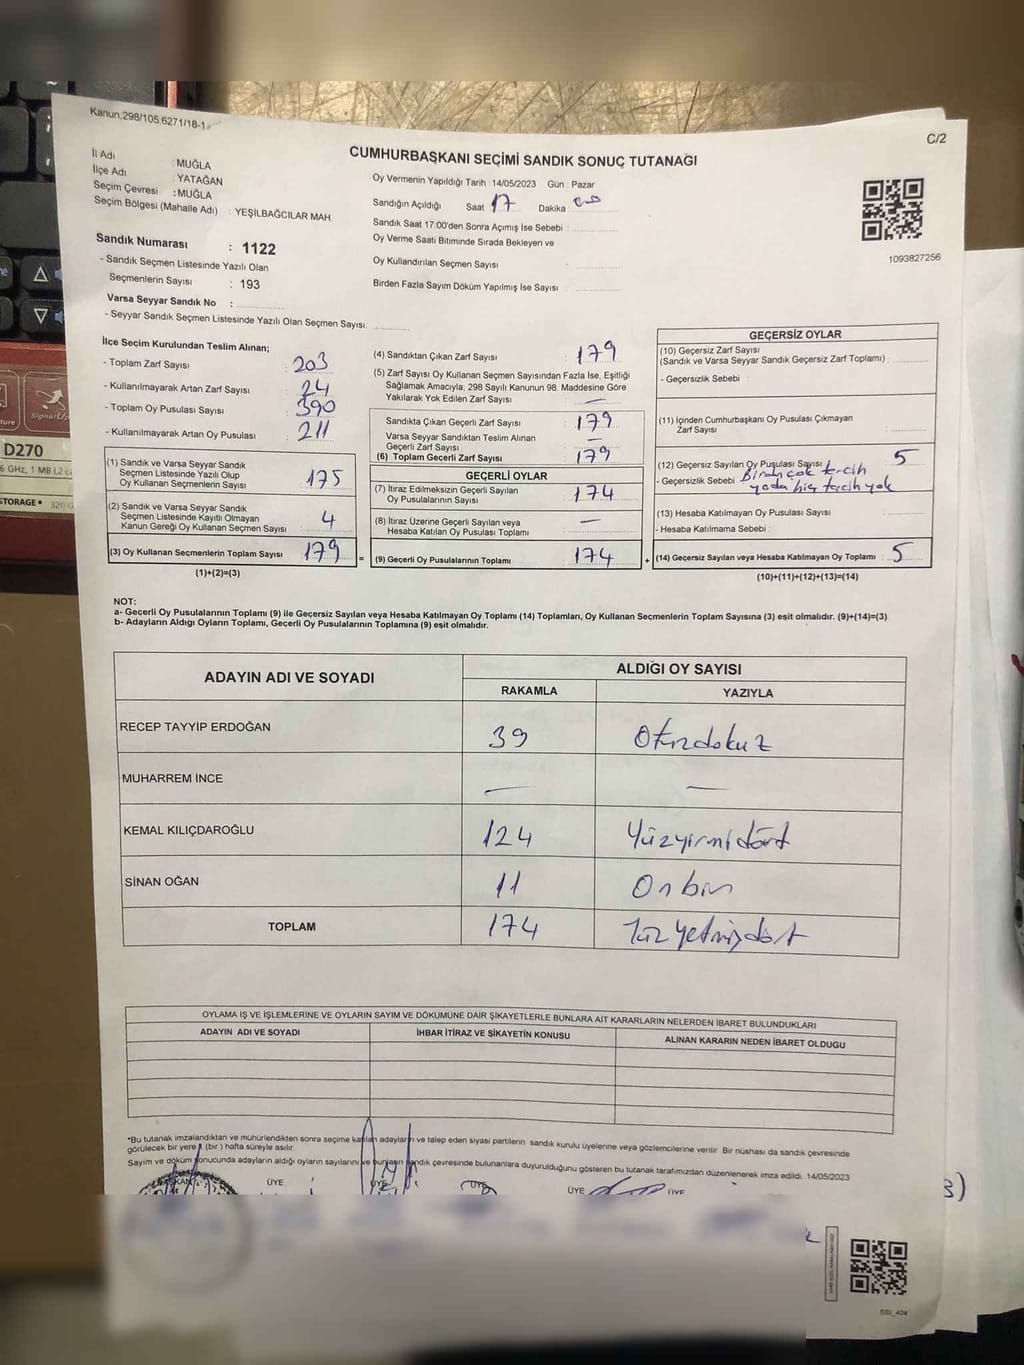 Kanun:298/105,6271/18-1
C/2
CUMHURBAŞKANI SEÇİMİ SANDIK SONUÇ TUTANAĞI
İl Adı : MUĞLA
İlçe Adı : YATAĞAN
Seçim Çevresi : MUĞLA
Seçim Bölgesi (Mahalle Adı) : YEŞİLBAĞCILAR MAH.
Oy Vermenin Yapıldığı Tarih : 14/05/2023 Gün : Pazar
Sandığın Açıldığı Saat 17 Dakika
Sandık Saat 17:00'den Sonra Açımış İse Sebebi :
Oy Verme Saati Bitiminde Sırada Bekleyen ve
Oy Kullandırılan Seçmen Sayısı :
Birden Fazla Sayım Döküm Yapılmış İse Sayısı :
1093827256
Sandık Numarası : 1122
- Sandık Seçmen Listesinde Yazılı Olan
Seçmenlerin Sayısı : 193
Varsa Seyyar Sandık No :
- Seyyar Sandık Seçmen Listesinde Yazılı Olan Seçmen Sayısı:
İlçe Seçim Kurulundan Teslim Alınan;
- Toplam Zarf Sayısı : 203
- Kullanılmayarak Artan Zarf Sayısı : 24
- Toplam Oy Pusulası Sayısı : 390
- Kullanılmayarak Artan Oy Pusulası : 211
(1) Sandık ve Varsa Seyyar Sandık
Seçmen Listesinde Yazılı Olup
Oy Kullanan Seçmenlerin Sayısı : 175
(2) Sandık ve Varsa Seyyar Sandık
Seçmen Listesinde Kayıtlı Olmayan
Kanun Gereği Oy Kullanan Seçmen Sayısı : 4
(3) Oy Kullanan Seçmenlerin Toplam Sayısı : 179 =
(1)+(2)=(3)
(4) Sandıktan Çıkan Zarf Sayısı : 179
(5) Zarf Sayısı Oy Kullanan Seçmen Sayısından Fazla İse, Eşitliği
Sağlamak Amacıyla, 298 Sayılı Kanunun 98. Maddesine Göre
Yakılarak Yok Edilen Zarf Sayısı : —
Sandıkta Çıkan Geçerli Zarf Sayısı : 179
Varsa Seyyar Sandıktan Teslim Alınan
Geçerli Zarf Sayısı : —
(6) Toplam Geçerli Zarf Sayısı : 179
GEÇERLİ OYLAR
(7) İtiraz Edilmeksizin Geçerli Sayılan
Oy Pusulasının Sayısı : 174
(8) İtiraz Üzerine Geçerli Sayılan veya
Hesaba Katılan Oy Pusulası Toplamı : —
(9) Geçerli Oy Pusulalarının Toplamı : 174 +
GEÇERSİZ OYLAR
(10) Geçersiz Zarf Sayısı
(Sandık ve Varsa Seyyar Sandık Geçersiz Zarf Toplamı) :
- Geçersizlik Sebebi :
(11) İçinden Cumhurbaşkanı Oy Pusulası Çıkmayan
Zarf Sayısı :
(12) Geçersiz Sayılan Oy Pusulası Sayısı : 5
- Geçersizlik Sebebi : Birden çok tercih
yada hiç tercih yok
(13) Hesaba Katılmayan Oy Pusulası Sayısı :
- Hesaba Katılmama Sebebi :
(14) Geçersiz Sayılan veya Hesaba Katılmayan Oy Toplamı : 5
(10)+(11)+(12)+(13)=(14)
NOT:
a- Geçerli Oy Pusulalarının Toplamı (9) ile Geçersiz Sayılan veya Hesaba Katılmayan Oy Toplamı (14) Toplamları, Oy Kullanan Seçmenlerin Toplam Sayısına (3) eşit olmalıdır. (9)+(14)=(3)
b- Adayların Aldığı Oyların Toplamı, Geçerli Oy Pusulalarının Toplamına (9) eşit olmalıdır.
ADAYIN ADI VE SOYADI
ALDIĞI OY SAYISI
RAKAMLA YAZIYLA
RECEP TAYYİP ERDOĞAN 39 Otuzdokuz
MUHARREM İNCE — —
KEMAL KILIÇDAROĞLU 124 Yüzyirmidört
SİNAN OĞAN 11 Onbir
TOPLAM 174 Yüzyetmişdört
OYLAMA İŞ VE İŞLEMLERİNE VE OYLARIN SAYIM VE DÖKÜMÜNE DAİR ŞİKAYETLERLE BUNLARA AİT KARARLARIN NELERDEN İBARET BULUNDUKLARI
ADAYIN ADI VE SOYADI
İHBAR İTİRAZ VE ŞİKAYETİN KONUSU
ALINAN KARARIN NEDEN İBARET OLDUGU
*Bu tutanak imzalandıktan ve mühürlendikten sonra seçime katılan adayların ve talep eden siyasi partilerin sandık kurulu üyelerine veya gözlemcilerine verilir. Bir nüshası da sandık çevresinde
görülecek bir yere 1 (bir) hafta süreyle asılır.
Sayım ve döküm sonucunda adayların aldığı oyların sayılarını ve bunların sandık çevresinde bulunanlara duyurulduğunu gösteren bu tutanak tarafımızdan düzenlenerek imza edildi. 14/05/2023
BAŞKAN ÜYE ÜYE ÜYE ÜYE
D270
SignalUp